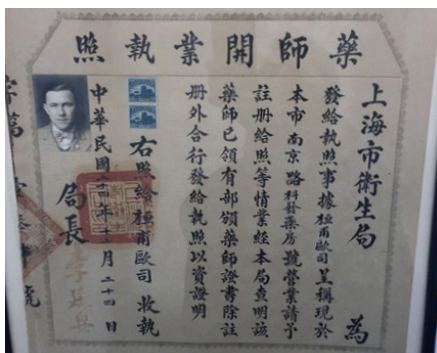 藥師開業執照
上海市衛生局 為
發給執照事據極甫歐司呈稱現於
本市南京路科發藥房 號營業請予
註冊給照等情業經本局查明該
藥師已領有部頒藥師證書除註
冊外合行發給執照以資證明
右照給極甫歐司 收執
中華民國廿四年十二月二十四日
局長 李廷安
字第 號